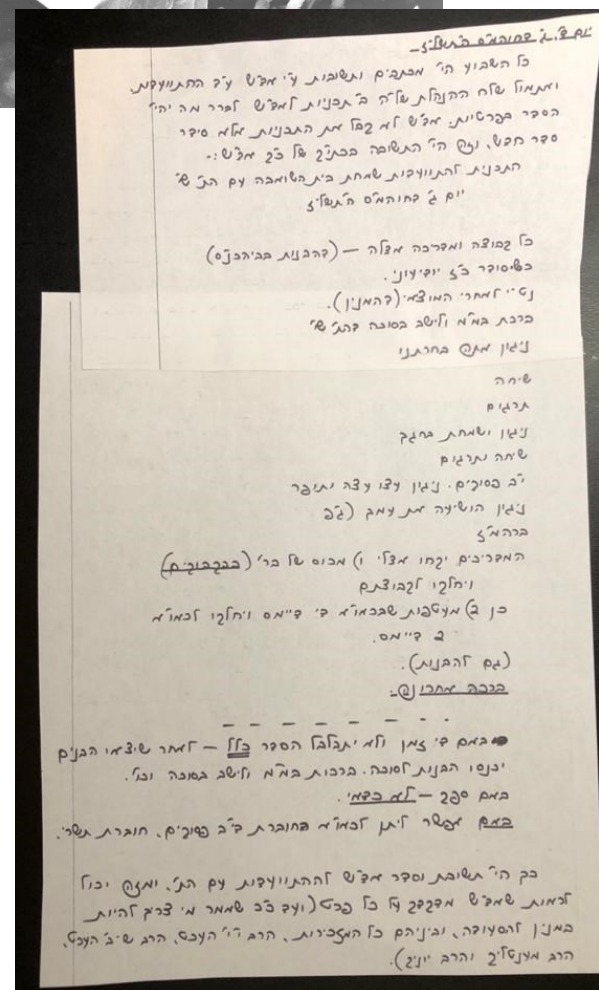 יום ד', ג' דחוהמ"ס ה'תשל"ז
כל השבוע הי' מכתבים ותשובות ע"י אד"ש ע"ד ההתוועדות,
ואתמול שלח ההנהלת של"ה ב' תכניות לאד"ש לברר מה יהי'
הסדר בפרטיות. אד"ש לא קבל את התכניות אלא סידר
סדר חדש, וזה הי' התשובה בכתי"ק של כ"ק אד"ש:-
התכנית להתוועדות שמחת בית השואבה עם הת' שי'
יום ג' דחוהמ"ס ה'תשל"ז
כל קבוצה ומדריכה אצלה – (דהבנות בביהכנ"ס)
כשיסודר כ"ז יודיעוני.
נט"י לאחרי המוציא (דהמנין).
ברכת במ"מ ולישב בסוכה דהת' שי'
ניגון אתה בחרתנו
שיחה
תרגום
ניגון ושמחת בחגך
שיחה ותרגום
י"ב פסוקים. ניגון עצו עצה ותופר
ניגון הושיעה את עמך (ג"פ
ברהמ"ז
המדריכים יקחו אצלי 1) מכוס של בר' (בבקבוקים)
ויחלקו לקבוצתם
כן 2) מעטפות שבכאו"א ב' דיימס ויחלקו לכאו"א
2 דיימס.
(גם להבנות).
ברכה אחרונה.
באם די זמן ולא יתבלבל הסדר כלל – לאחר שיצאו הבנים
יכנסו הבנות לסוכה. ברכות במ"מ ולישב בסוכה וכו'.
באם ספק – לא כדאי.
באם אפשר ליתן לכאו"א חוברת די"ב פסוקים, חוברת תשרי.
כך הי' תשובת וסדר אד"ש לההתוועדות עם הת', ומזה יכול
לראות שאד"ש מדקדק על כל פרט (ועד כ"כ שאמר מי צריך להיות
במנין להסעודה, וביניהם כל המזכירות, הרב
הרב מענטליק והרב